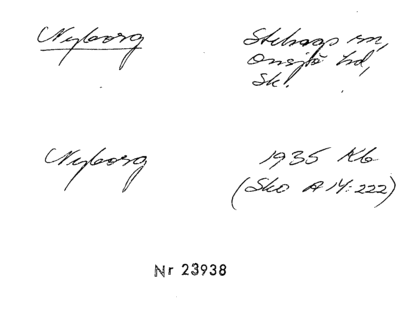 Nyborg Stehags sn,
Onsjö hd,
Sk.
Nyborg 1935 Kb
(Sko A 14:222)
Nr 23938